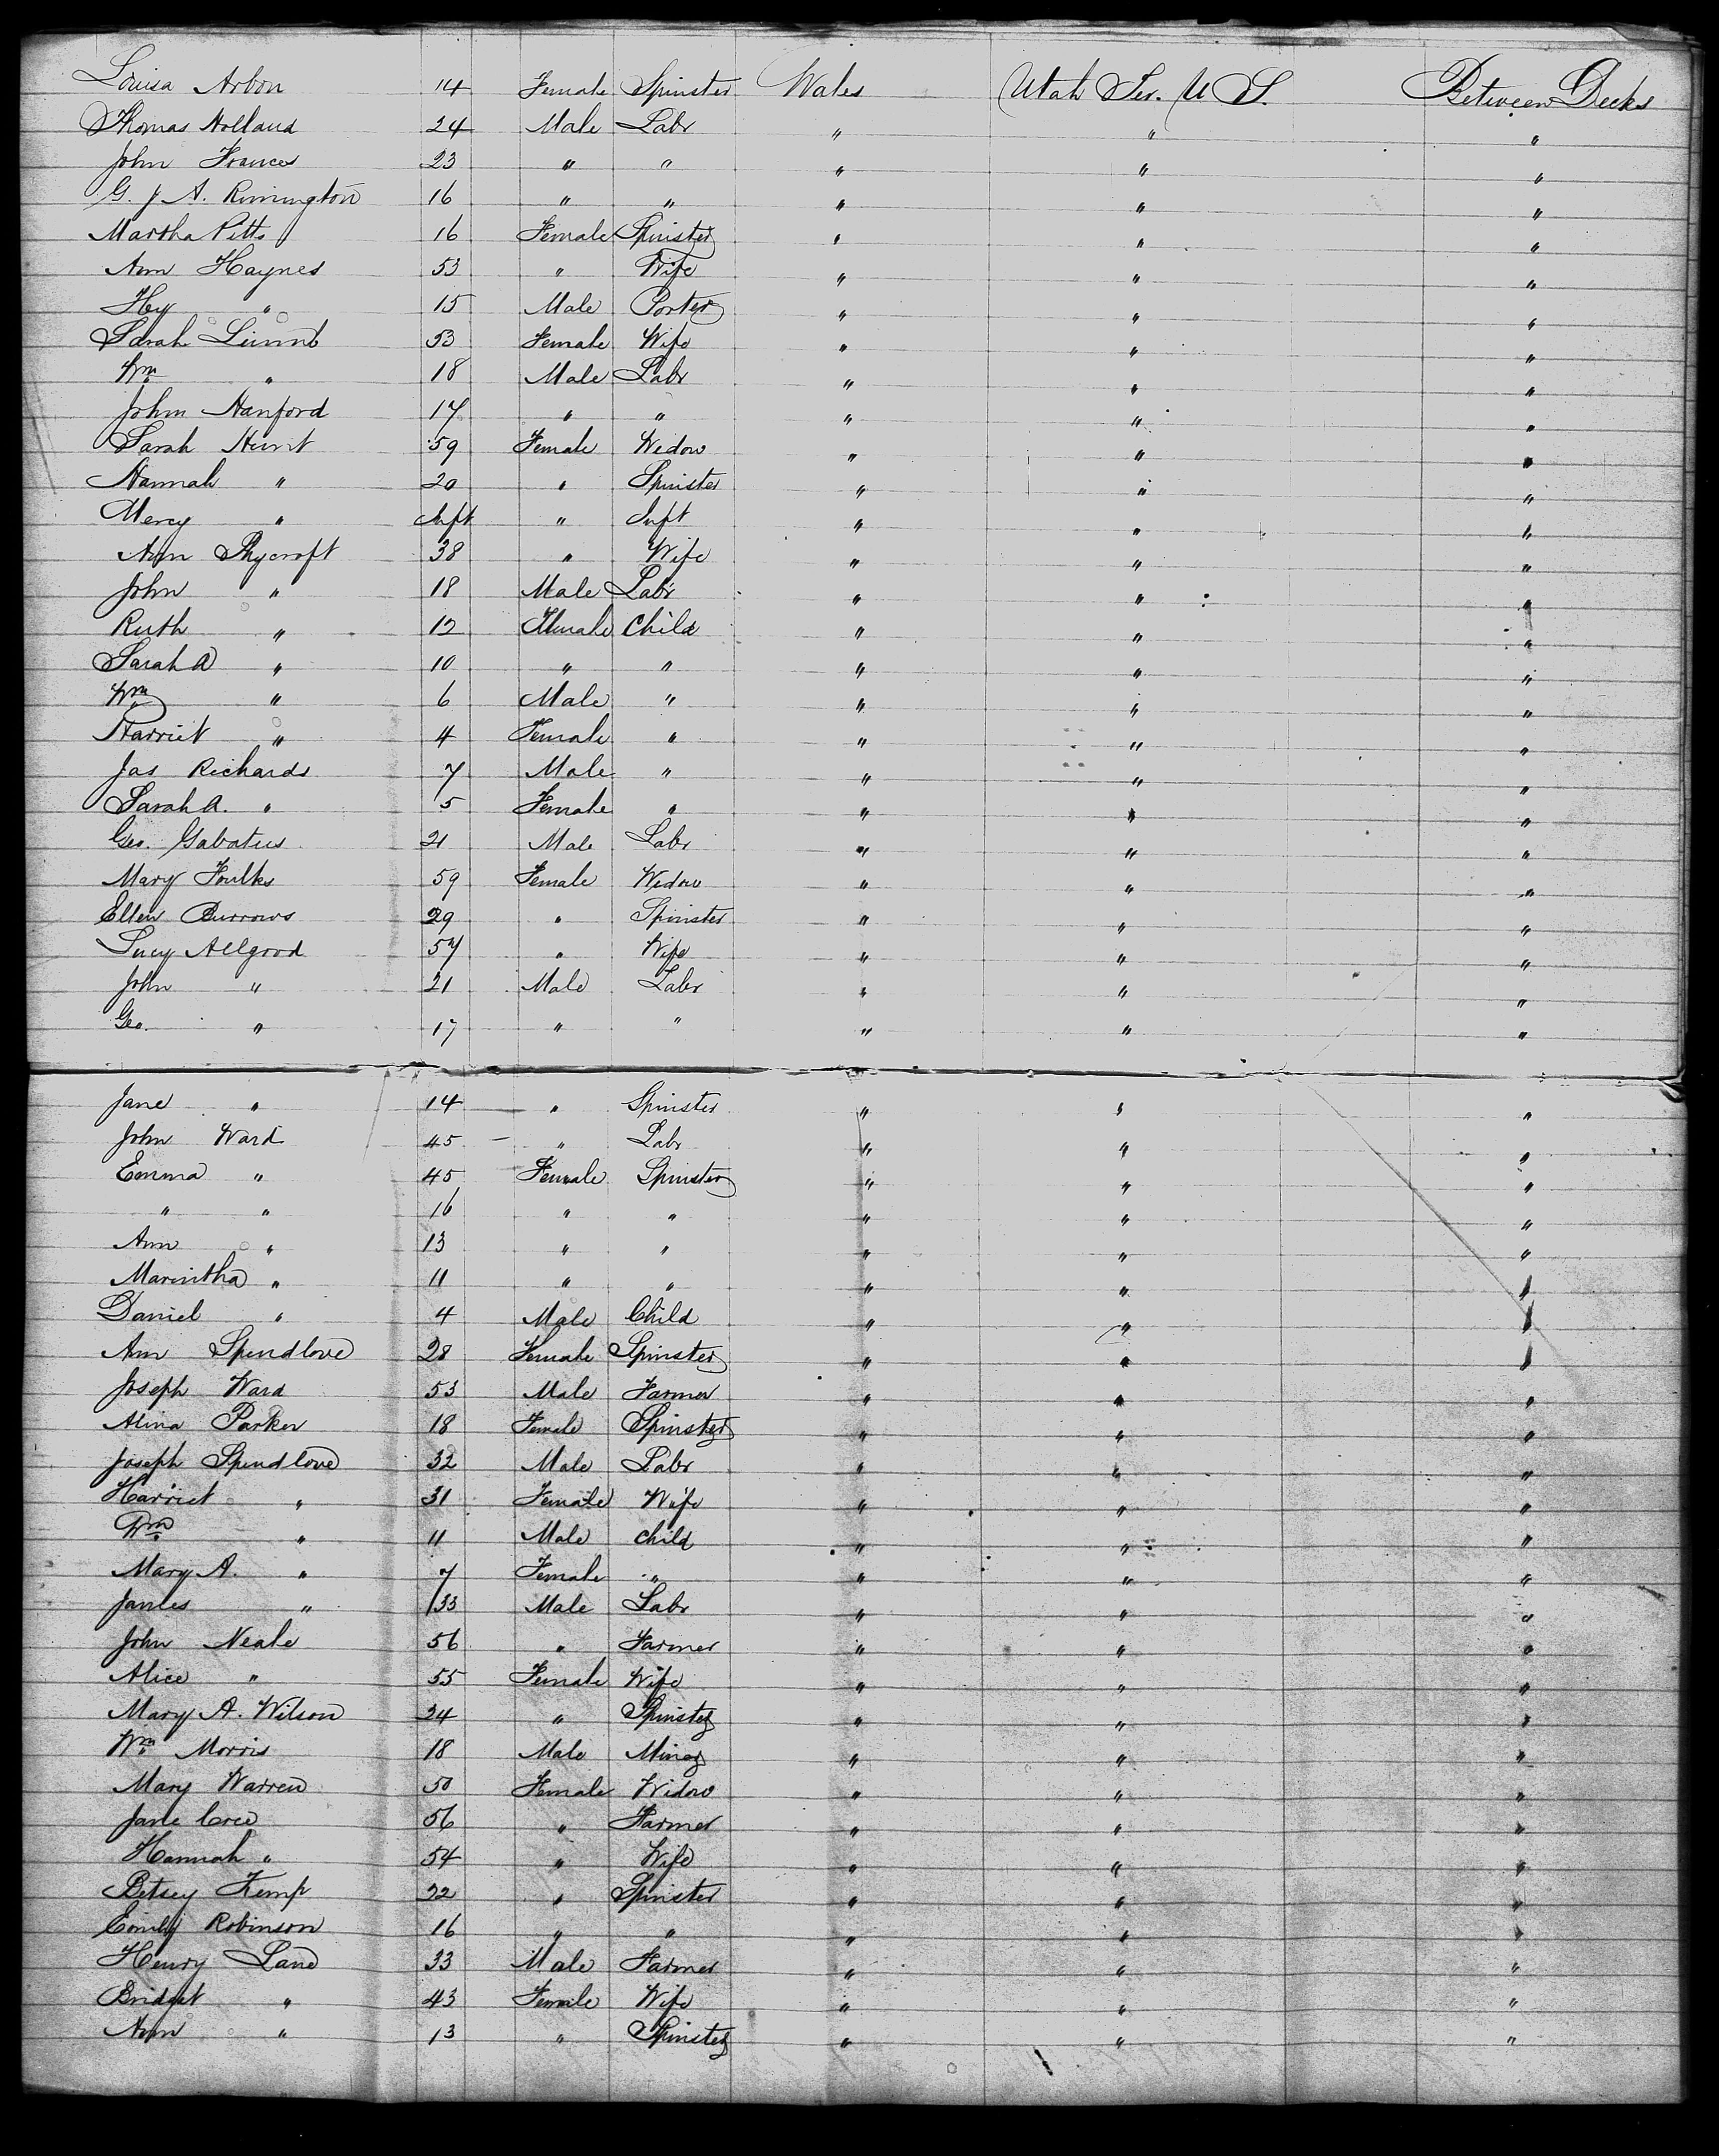 Louisa Arbon 14 Female Spinster Wales Utah Ter. U S. Between Decks
Thomas Holland 24 Male Labr " " "
John Frances 23 " " " " "
G. J A. Rimington 16 " " " " "
Martha Pitts 16 Female Spinster " " "
Ann Haynes 53 " Wife " " "
Hy " 15 Male Porter " " "
Sarah 53 Female Wife " " "
Wm " 18 Male Labr " " "
John Hanford 17 " " " " "
Sarah Hunt 59 Female Wedow " " "
Hannah " 20 " Spinster " " "
Mercy " Inft " Inft " " "
Ann Phycroft 38 " Wife " " "
John " 18 Male Labr " " "
Ruth " 12 Female Child " " "
Sarah A " 10 " " " " "
Wm " 6 Male " " " "
Harriet " 4 Female " " " "
Jas Richards 7 Male " " " "
Sarah A. " 5 Female " " " "
Geo. 21 Male Labr " " "
Mary Foulks 59 Female Wedow " " "
Ellen Burrows 29 " Spinster " " "
Lucy Allgood 57 " Wife " " "
John " 21 Male Labr " " "
Geo. " 17 " " " " "
Jane " 14 " Spinster " " "
John Ward 45 " Labr " " "
Emma " 45 Female Spinster " " "
" " 16 " " " " "
Ann " 13 " " " " "
Marintha " 11 " " " " "
Daniel " 4 Male Child " " "
Ann Spendlove 28 Female Spinster " " "
Joseph Ward 53 Male Farmer " " "
Alina Parker 18 Female Spinster " " "
Joseph Spendlove 32 Male Labr " " "
Harriet " 31 Female Wife " " "
Wm " 11 Male Child " " "
Mary A. " 7 Female " " " "
James " 33 Male Labr " " "
John Neale 56 " Farmer " " "
Alice " 55 Female Wife " " "
Mary A. Wilson 24 " Spinster " " "
Wm Morris 18 Male Miner " " "
Mary Warren 50 Female Widow " " "
Jane Cree 56 " Farmer " " "
Hannah " 54 " Wife " " "
Betsey Kemp 22 " Spinster " " "
Emily Robinson 16 " " " " "
Henry Lane 33 Male Farmer " " "
Bridget " 43 Female Wife " " "
Ann " 13 " Spinster " " "